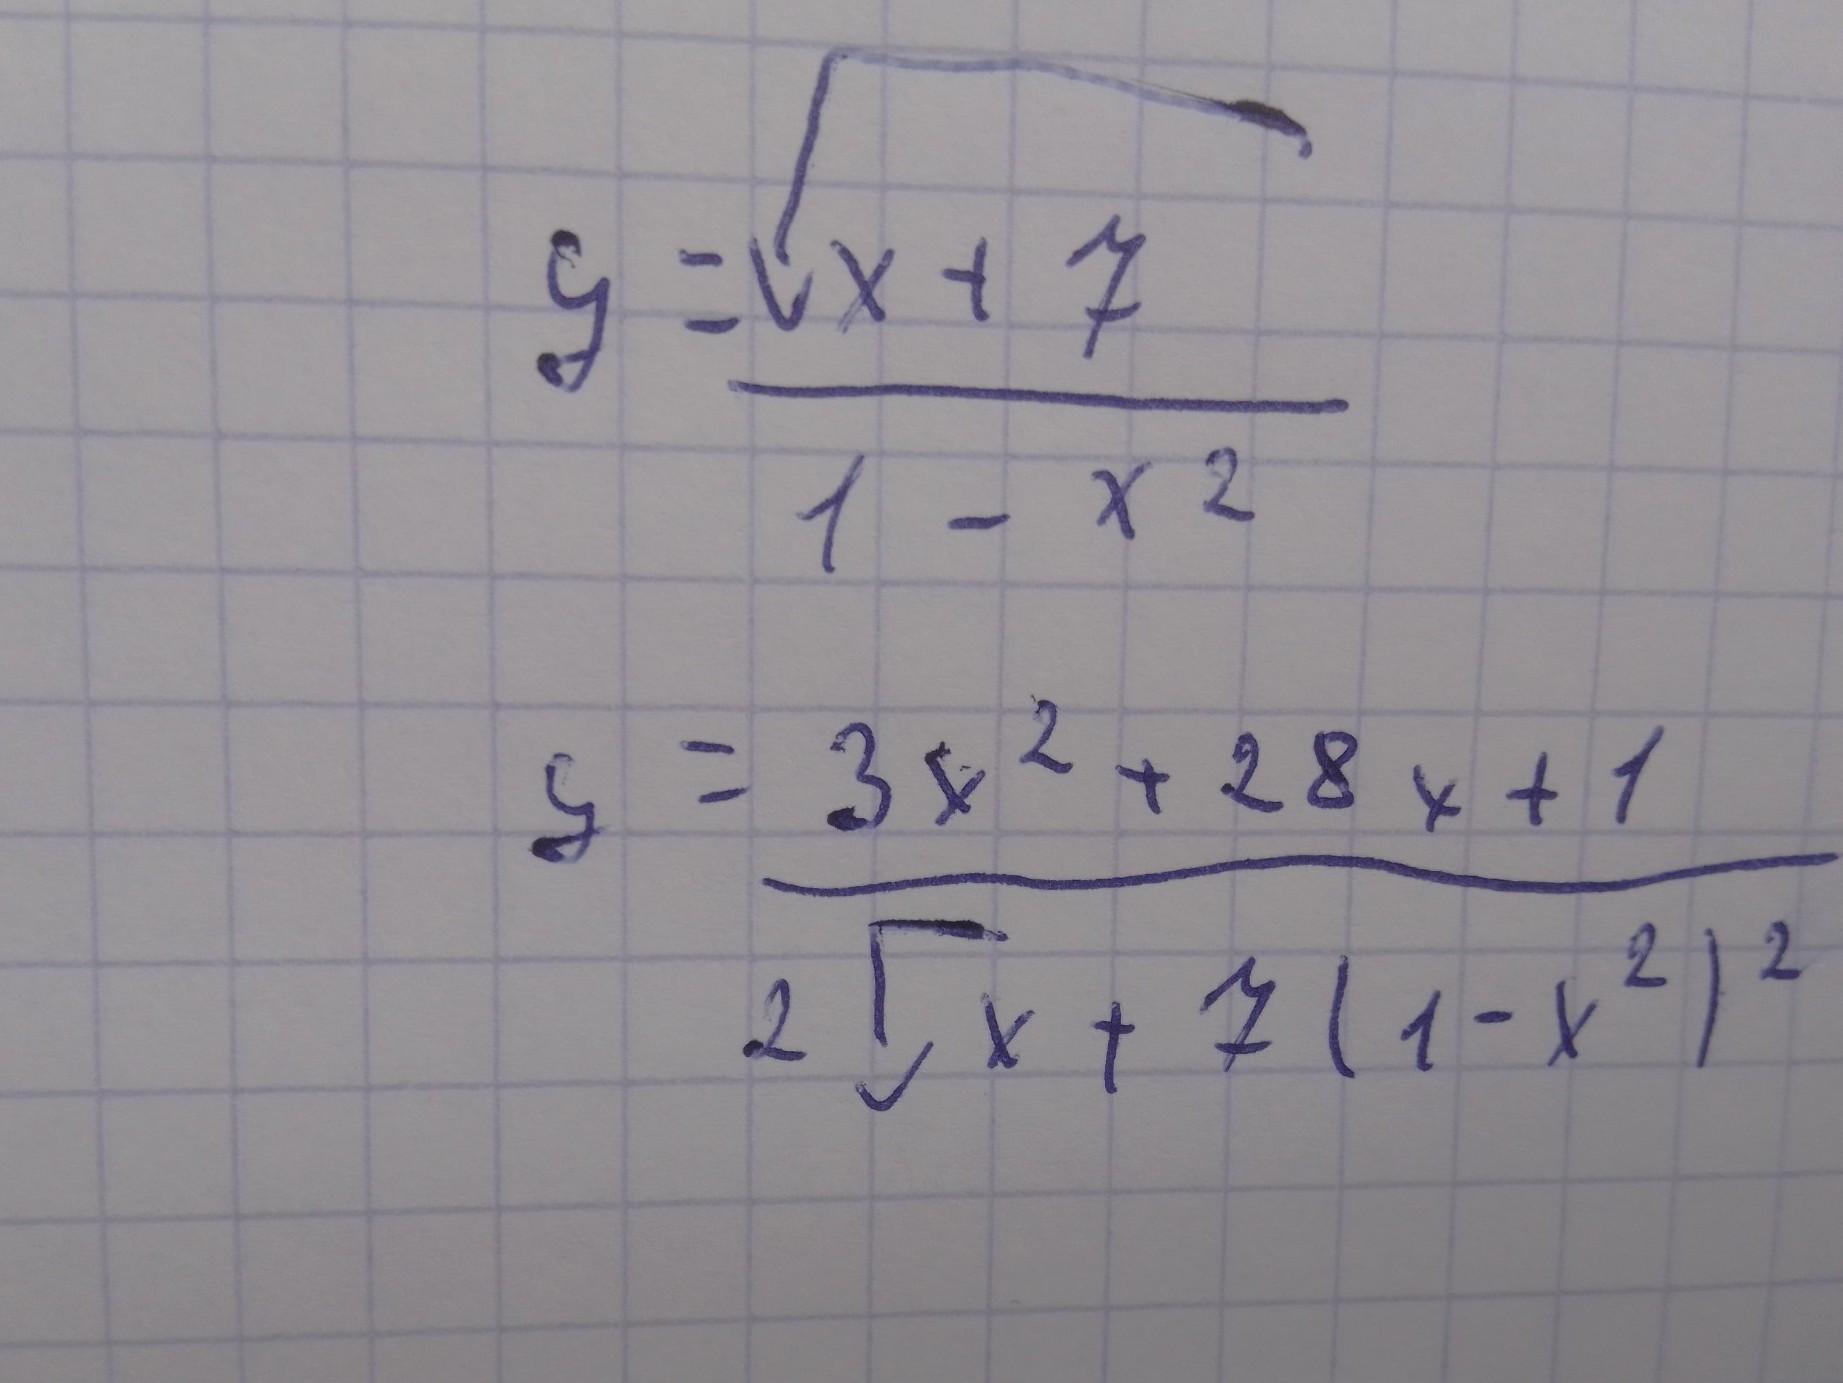 y = √x + 7
1 - x²
y = 3x² + 28x + 1
2√x + 7(1 - x²)²